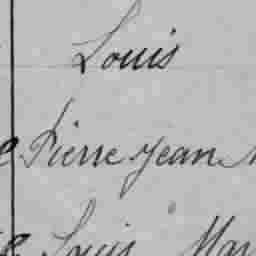 Louis
Pierre Jean
Louis Mar